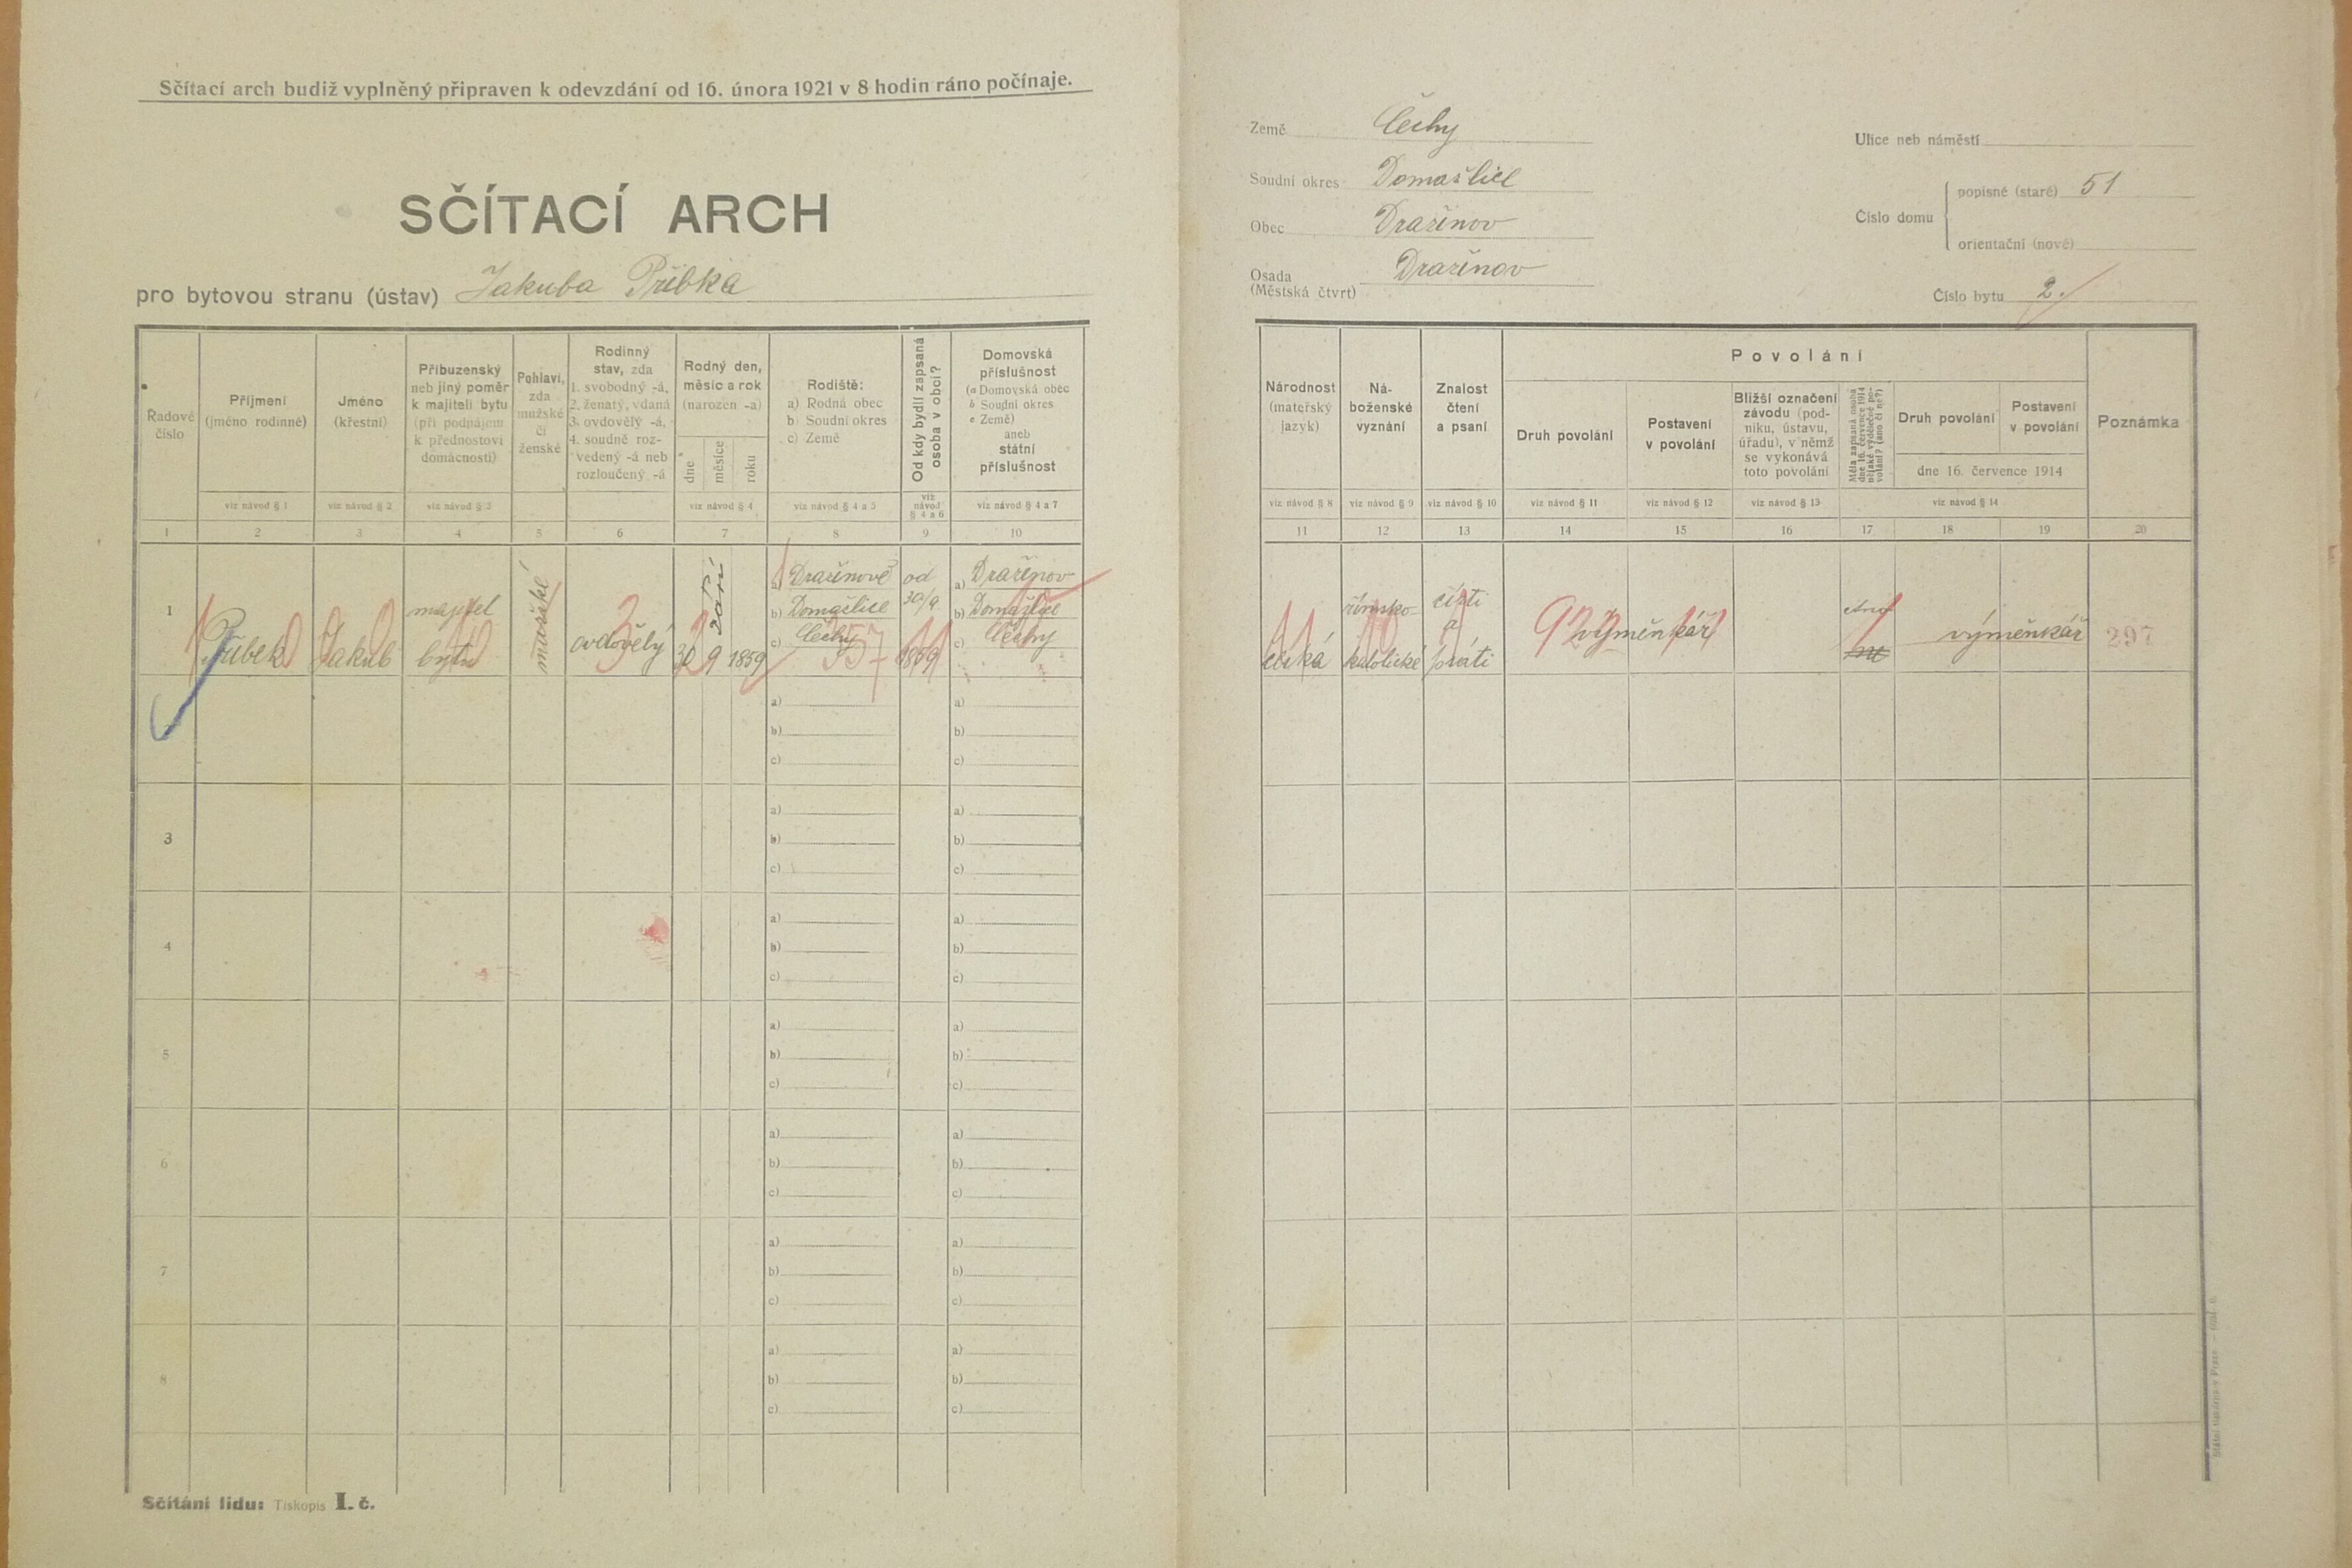 Sčítací arch budiž vyplněný připraven k odevzdání od 16. února 1921 v 8 hodin ráno počínaje.
SČÍTACÍ ARCH
pro bytovou stranu (ústav) Jakuba Přibka
Řadové
číslo
Příjmení
(jméno rodinné)
viz návod § 1
Jméno
(křestní)
viz návod § 2
Příbuzenský
neb jiný poměr
k majiteli bytu
(při podnájem
k přednostovi
domácnosti)
viz návod § 3
Pohlaví,
zda
mužské
či
ženské
Rodinný
stav, zda
1. svobodný -á,
2. ženatý, vdaná
3. ovdovělý -á,
4. soudně roz-
vedený -á neb
rozloučený -á
Rodný den,
měsíc a rok
(narozen -a)
dne
měsíce
roku
viz návod § 4
Rodiště:
a) Rodná obec
b) Soudní okres
c) Země
viz návod § 4 a 5
Od kdy bydlí zapsaná
osoba v obci?
viz
návod
§ 4 a 6
Domovská
příslušnost
(a Domovská obec
b Soudní okres
c Země)
aneb
státní
příslušnost
viz návod § 4 a 7
1 2 3 4 5 6 7 8 9 10
1
Přibek
Jakub
majitel
bytu
mužské
ovdovělý
3
30 9 1859
září
a) Dražinově
b) Domažlice
c) Čechy
357
od
30/9
1859
a) Dražinov
b) Domažlice
c) Čechy
a)
b)
c)
a)
b)
c)
3
a)
b)
c)
a)
b)
c)
4
a)
b)
c)
a)
b)
c)
5
a)
b)
c)
a)
b)
c)
6
a)
b)
c)
a)
b)
c)
7
a)
b)
c)
a)
b)
c)
8
a)
b)
c)
a)
b)
c)
Sčítání lidu: Tiskopis I. č.
Země Čechy
Soudní okres Domažlice
Obec Dražinov
Osada
(Městská čtvrť) Dražinov
Ulice neb náměstí
Číslo domu
popisné (staré) 51
orientační (nové)
Číslo bytu 2.
Národnost
(mateřský
jazyk)
viz návod § 8
Ná-
boženské
vyznání
viz návod § 9
Znalost
čtení
a psaní
viz návod § 10
Povolání
Druh povolání
viz návod § 11
Postavení
v povolání
viz návod § 12
Bližší označení
závodu (pod-
niku, ústavu,
úřadu), v němž
se vykonává
toto povolání
viz návod § 13
Měla zapsaná osoba
dne 16. července 1914
nějaké výdělečné po-
volání? (ano či ne?)
Druh povolání
Postavení
v povolání
dne 16. července 1914
viz návod § 14
Poznámka
11 12 13 14 15 16 17 18 19 20
česká
římsko-
katolické
čísti
a
psáti
výměnkář
ano
ne
výměnkář
297